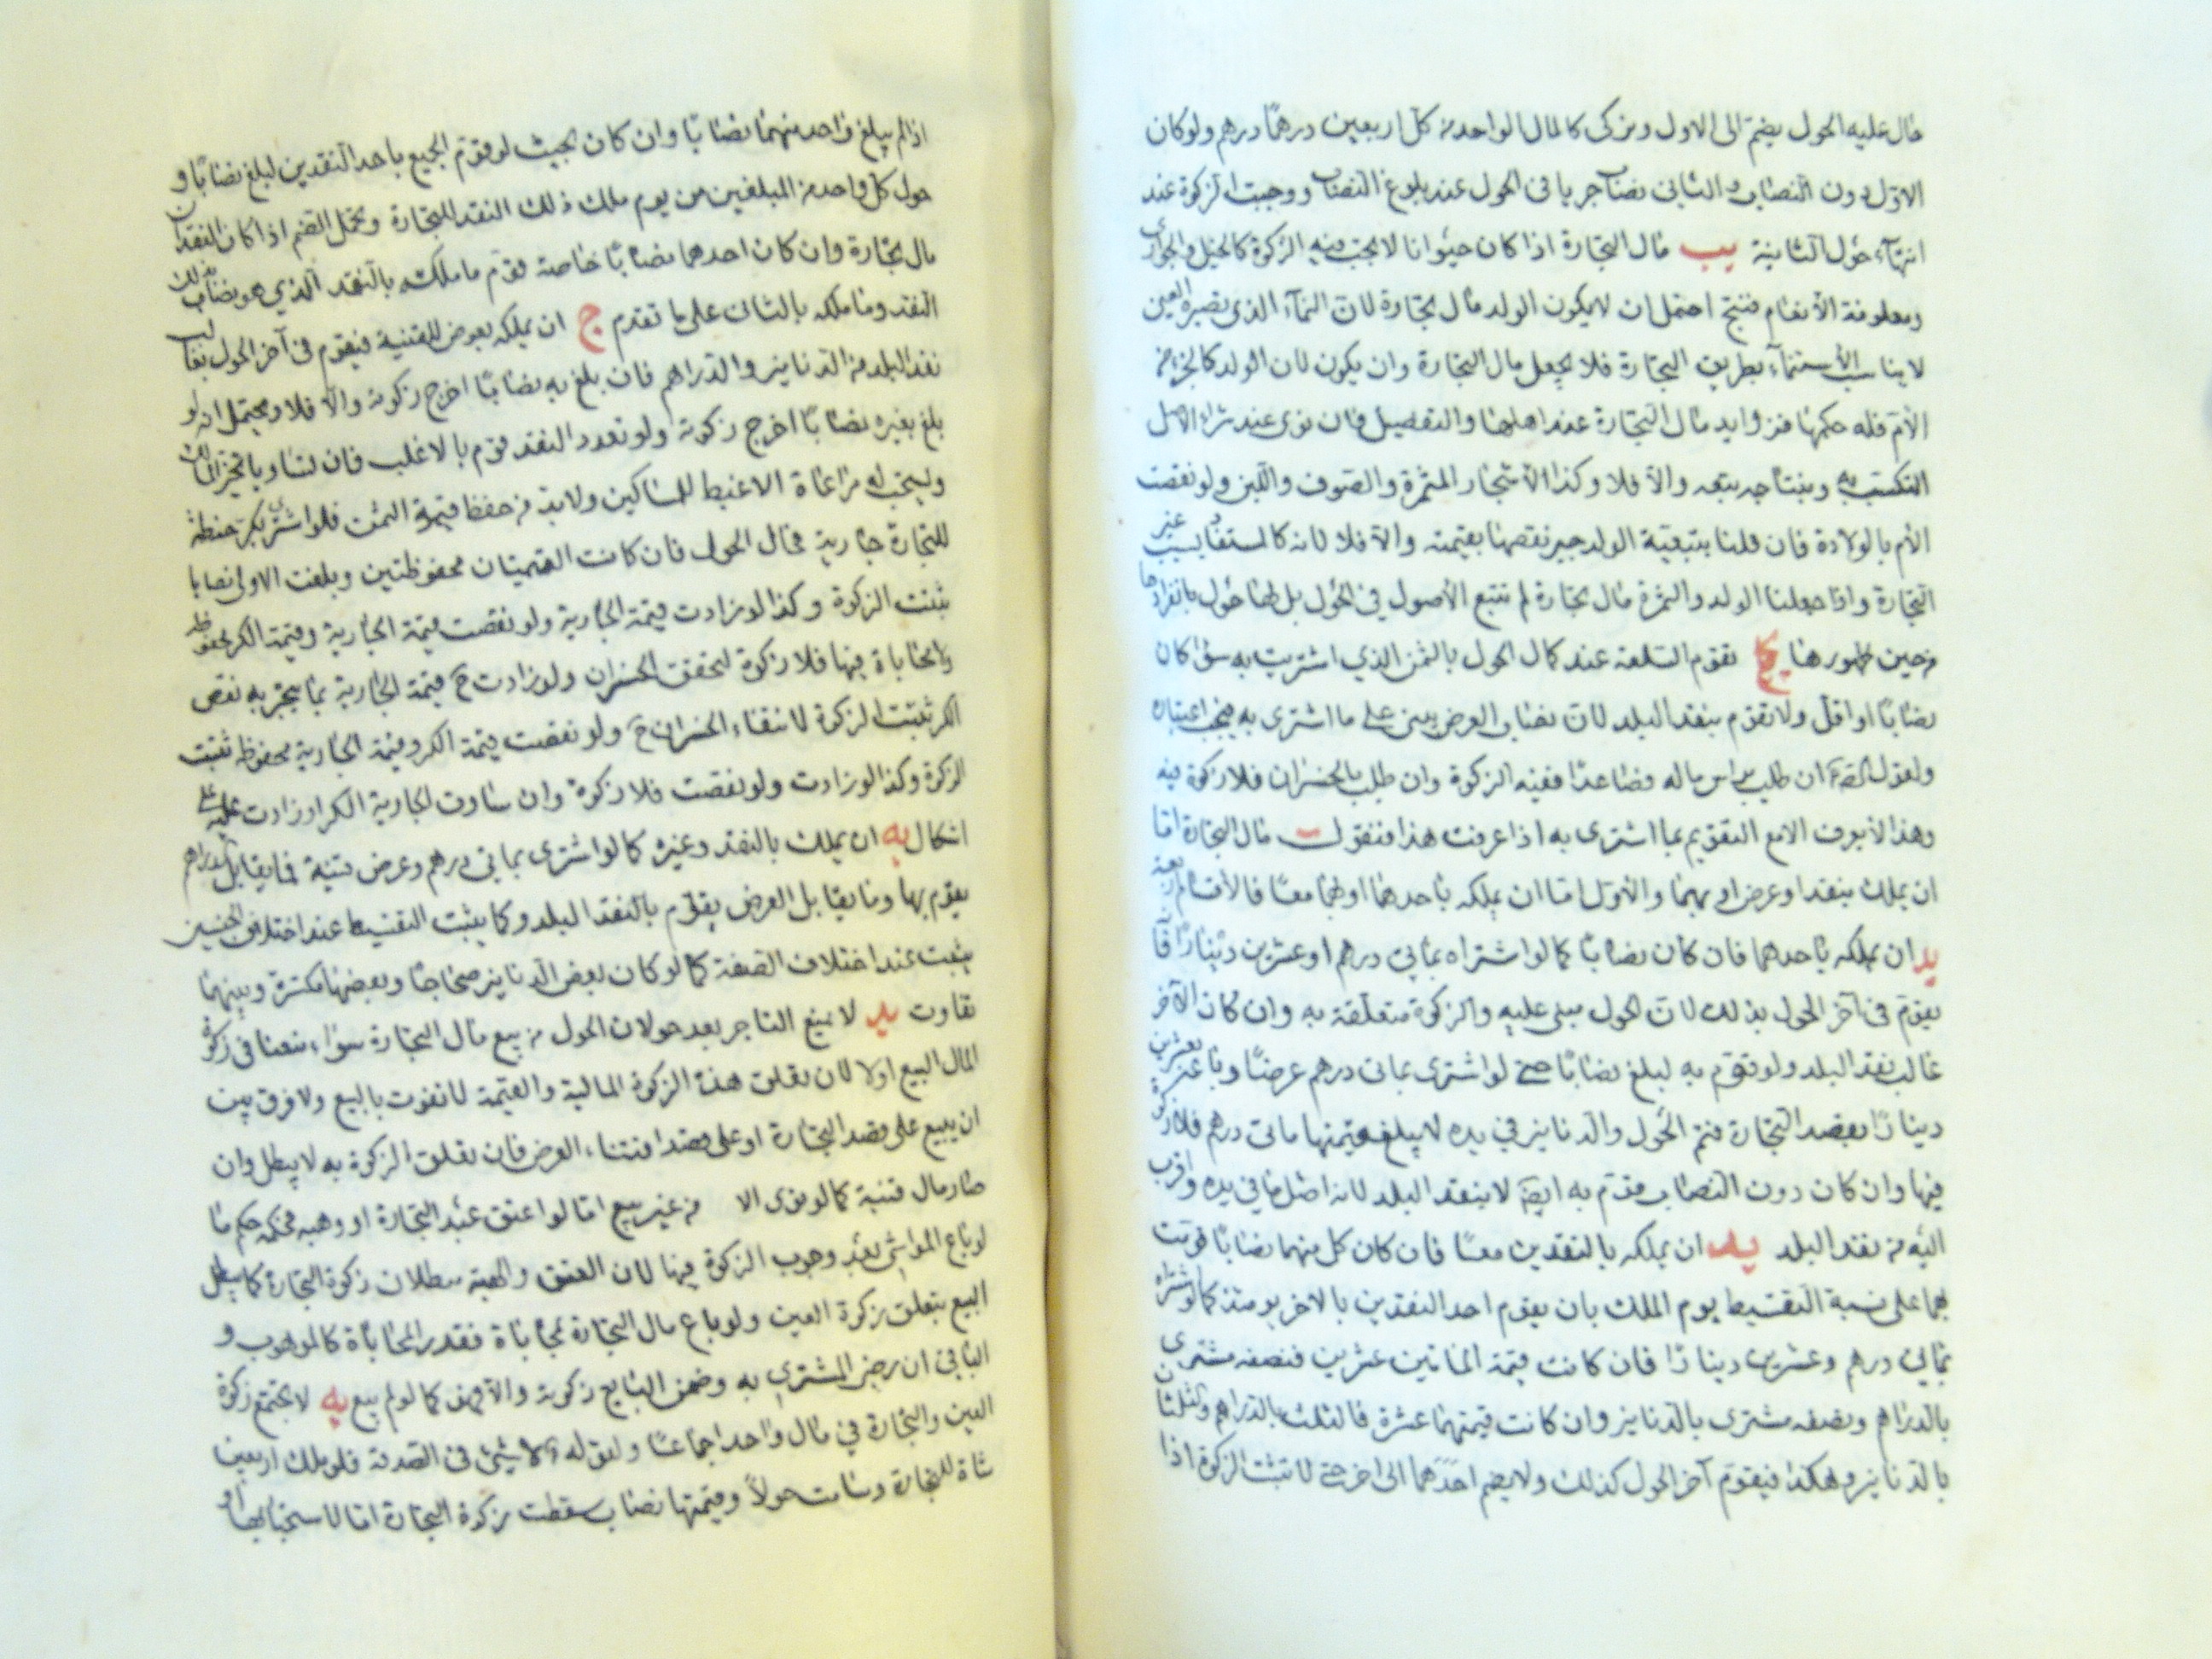 حال عليه الحول يضم الى الاول ويزكى كالمال الواحد من كل اربعين درهمًا درهم ولو كان
الاول دون النصاب والثانى نصاب جريا فى الحول عند بلوغ النصاب ووجبت الزكوة عند
انتهآء حول الثانية يب مال التجارة اذا كان حيوانا لا يجب فيه الزكوة كالخيل والجوارى
ومعلوفة الأنعام فنتج احتمل ان لا يكون الولد مال تجارة لان النمآء الذى يصيره العين
لا يناسب الأستنمآء بطريق التجارة فلا يجعل مال التجارة وان يكون لان الولد كالجزء من
الأم فله حكمها فزوايد مال التجارة عند اهلها والتفصيل فان نوى عند شراء الاصل
التكسب به وبنتاجه يتبعه والآ فلا وكذا الأشجار المثمرة والصوف واللبن ولو نقصت
الأم بالولادة فان قلنا بتبعية الولد جبر نقصها بقيمته والآ فلا لانه كالمستفاد بسبب غير
التجارة واذا جعلنا الولد والثمرة مال تجارة لم تتبع الأصول فى الحول بل لها حول بانفرادها
من حين ظهورها يج تقوم السلعة عند كمال الحول بالثمن الذي اشتريت به سوآ كان
نصابًا او اقل ولا تقوم بنقد البلد لان نصاب العرض يبنى على ما اشترى به فيجب اعتباره
ولقول ان طلب براس ماله فصاعدًا ففيه الزكوة وان طلب بالخسران فلا زكوة فيه
وهذا لا يعرف الا مع التقويم بما اشترى به اذا عرفت هذا فنقول مال التجارة اما
ان يملك بنقد او عرض او بهما والأول اما ان يملكه بأحدهما او بهما معًا فالأقسام اربعة
يد ان يملكه بأحدهما فان كان نصابًا كما لو اشتراه بمأتي درهم او عشرين دينارًا
يقوّم فى آخر الحول بذلك لان الحول مبنى عليه والزكوة متعلقة به وان كان الآخر
غالب نقد البلد ولو قوّم به لبلغ نصابًا حتى لو اشترى بمأتى درهم عرضًا وباعه بعشرين
دينارًا بقصد التجارة فتم الحول والدنانير في يده لا يبلغ قيمتها مأتى درهم فلا زكوة
فيها وان كان دون النصاب قوّم به ايضًا لا بنقد البلد لانه اصل ما في يده واقرب
اليه من نقد البلد يد ان يملكه بالنقدين معًا فان كان كل منهما نصابًا قومت
بهما على نسبة التقسيط يوم الملك بان يقوم احد النقدين بالاخر يومئذ كما لو اشتراه
بمأتي درهم وعشرين دينارًا فان كانت قيمة المأتين عشرين فنصفه مشترى
بالدراهم ونصفه مشترى بالدنانير وان كانت قيمتهما عشرة فالثلث بالدراهم والثلثان
بالدنانير وهكذا فيقوّم آخر الحول كذلك ولا يضم احدهما الى اخر حتى لا تثبت الزكوة اذا
اذا لم يبلغ واحد منهما نصابًا وان كان بحيث لو قوّم الجميع باحد النقدين لبلغ نصابًا و
حول كل واحد من المبلغين من يوم ملك ذلك النقد للتجارة ويحتمل الضم اذا كان النقدان
مال تجارة وان كان احدهما نصابًا خاصة قوّم ما ملكه بالنقد الذي هو نصاب بذلك
النقد وما ملكه بالثانى على ما تقدم ج ان يملكه بعرض للقنية فيقوم فى آخر الحول بغالب
نقد البلد من الدنانير والدراهم فان بلغ به نصابًا اخرج زكوته والآ فلا ويحتمل انه لو
بلغ بغيره نصابًا اخرج زكوته ولو تعدد النقد قوّم بالاغلب فان تساويا تخير المالك
ويستحب له مراعاة الاغبط للمساكين ولا بد من حفظ قيمة الثمن فلو اشترى بكر حنطة
للتجارة جارية فحال الحول فان كانت القيمتان محفوظتين وبلغت الاولى نصابا
ثبتت الزكوة وكذا لو زادت قيمة الجارية ولو نقصت قيمة الجارية وقيمة الكر محفوظة
والمحاباة فيها فلا زكوة لتحقق الخسران ولو زادت ح قيمة الجارية بما ينجبر به نقص
الكر ثبتت الزكوة لانتفاء الخسران ح ولو نقصت قيمة الكر وقيمة الجارية محفوظه ثبتت
الزكوة وكذا لو زادت ولو نقصت فلا زكوة وان ساوت الجارية الكر او زادت عليه على
اشكال يه ان يملك بالنقد وغيره كما لو اشترى بمأتى درهم وعرض قنية فما يقابل الدراهم
يقوم بها وما يقابل العرض يقوّم بالنقد البلد وكما يثبت التقسيط عند اختلاف الجنسين
يثبت عند اختلاف الصفة كما لو كان بعض الدنانير صحاحًا وبعضها مكسرة وبينهما
تفاوت يد لا يمنع التاجر بعد حولان الحول من بيع مال التجارة سواء منعنا فى زكوة
المال البيع اولا لان تعلق هذه الزكوة المالية والقيمة لا تفوت بالبيع ولا فرق بين
ان يبيع على قصد التجارة او على قصد اقتناء العرض فان تعلق الزكوة به لا يبطل وان
صار مال قنية كما لو نوى الا من غير بيع امّا لو اعتق عبد التجارة او وهبه فحكمه حكم ما
لو باع المواشى بعد وجوب الزكوة فيها لان العتق والهبة يبطلان زكوة التجارة كما يبطل
البيع يتعلق بزكوة العين ولو باع مال التجارة بمحاباة فقدر المحاباة كالموهوب و
الباقى ان رضى المشتري به وضمن البايع زكوته والآ فهو كما لو لم يبع يه لا يجتمع زكوة
العين والتجارة في مال واحد اجماعًا ولقوله لا ثنى فى الصدقة فلو ملك اربعين
شاة للتجارة وسامت حولاً وقيمتها نصاب سقطت زكوة التجارة اما لاستحبابها او